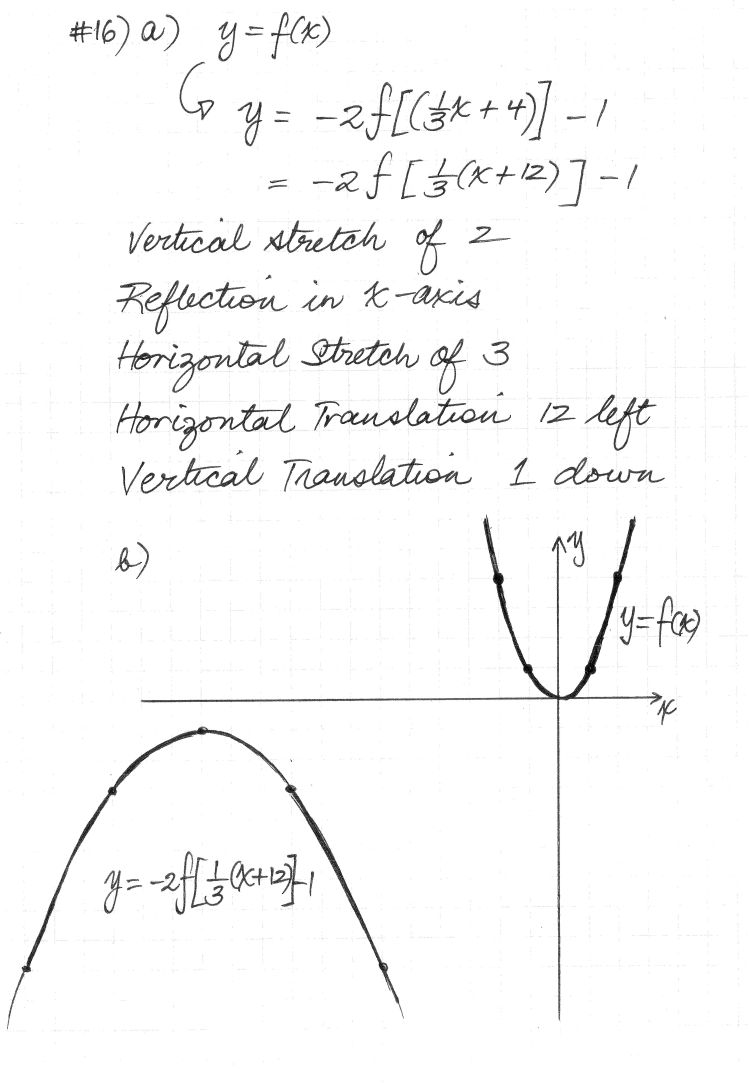 #16) a) y = f(x)
y = -2f[(⅓x + 4)] - 1
= -2f [⅓(x+12)] - 1
Vertical stretch of 2
Reflection in x-axis
Horizontal Stretch of 3
Horizontal Translation 12 left
Vertical Translation 1 down
b)
y
y = f(x)
x
y = -2f[⅓(x+12)]-1